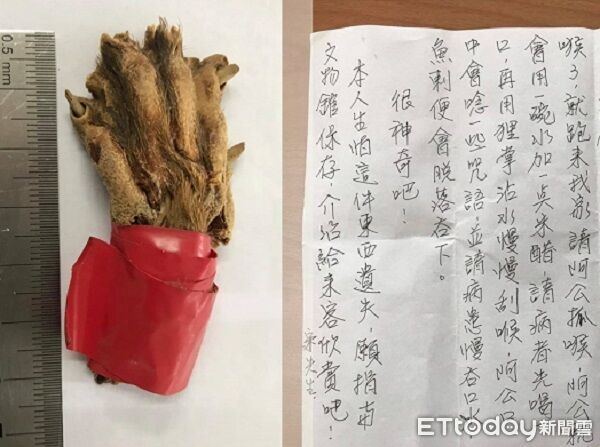 0.5 mm
喉了,就跑来找家請阿公抓喉,阿公說
會用一碗水加一点米醋,請病者先喝
口,再用狸掌沾水慢慢刮喉,阿公口
中會唸一些咒語,並請病患慢吞口水
魚刺便會脱落吞下。
很神奇吧!
本人生怕這件東西遺失,願捐南
文物館保存,介紹給来客欣賞吧!
先生
ETtoday新聞雲